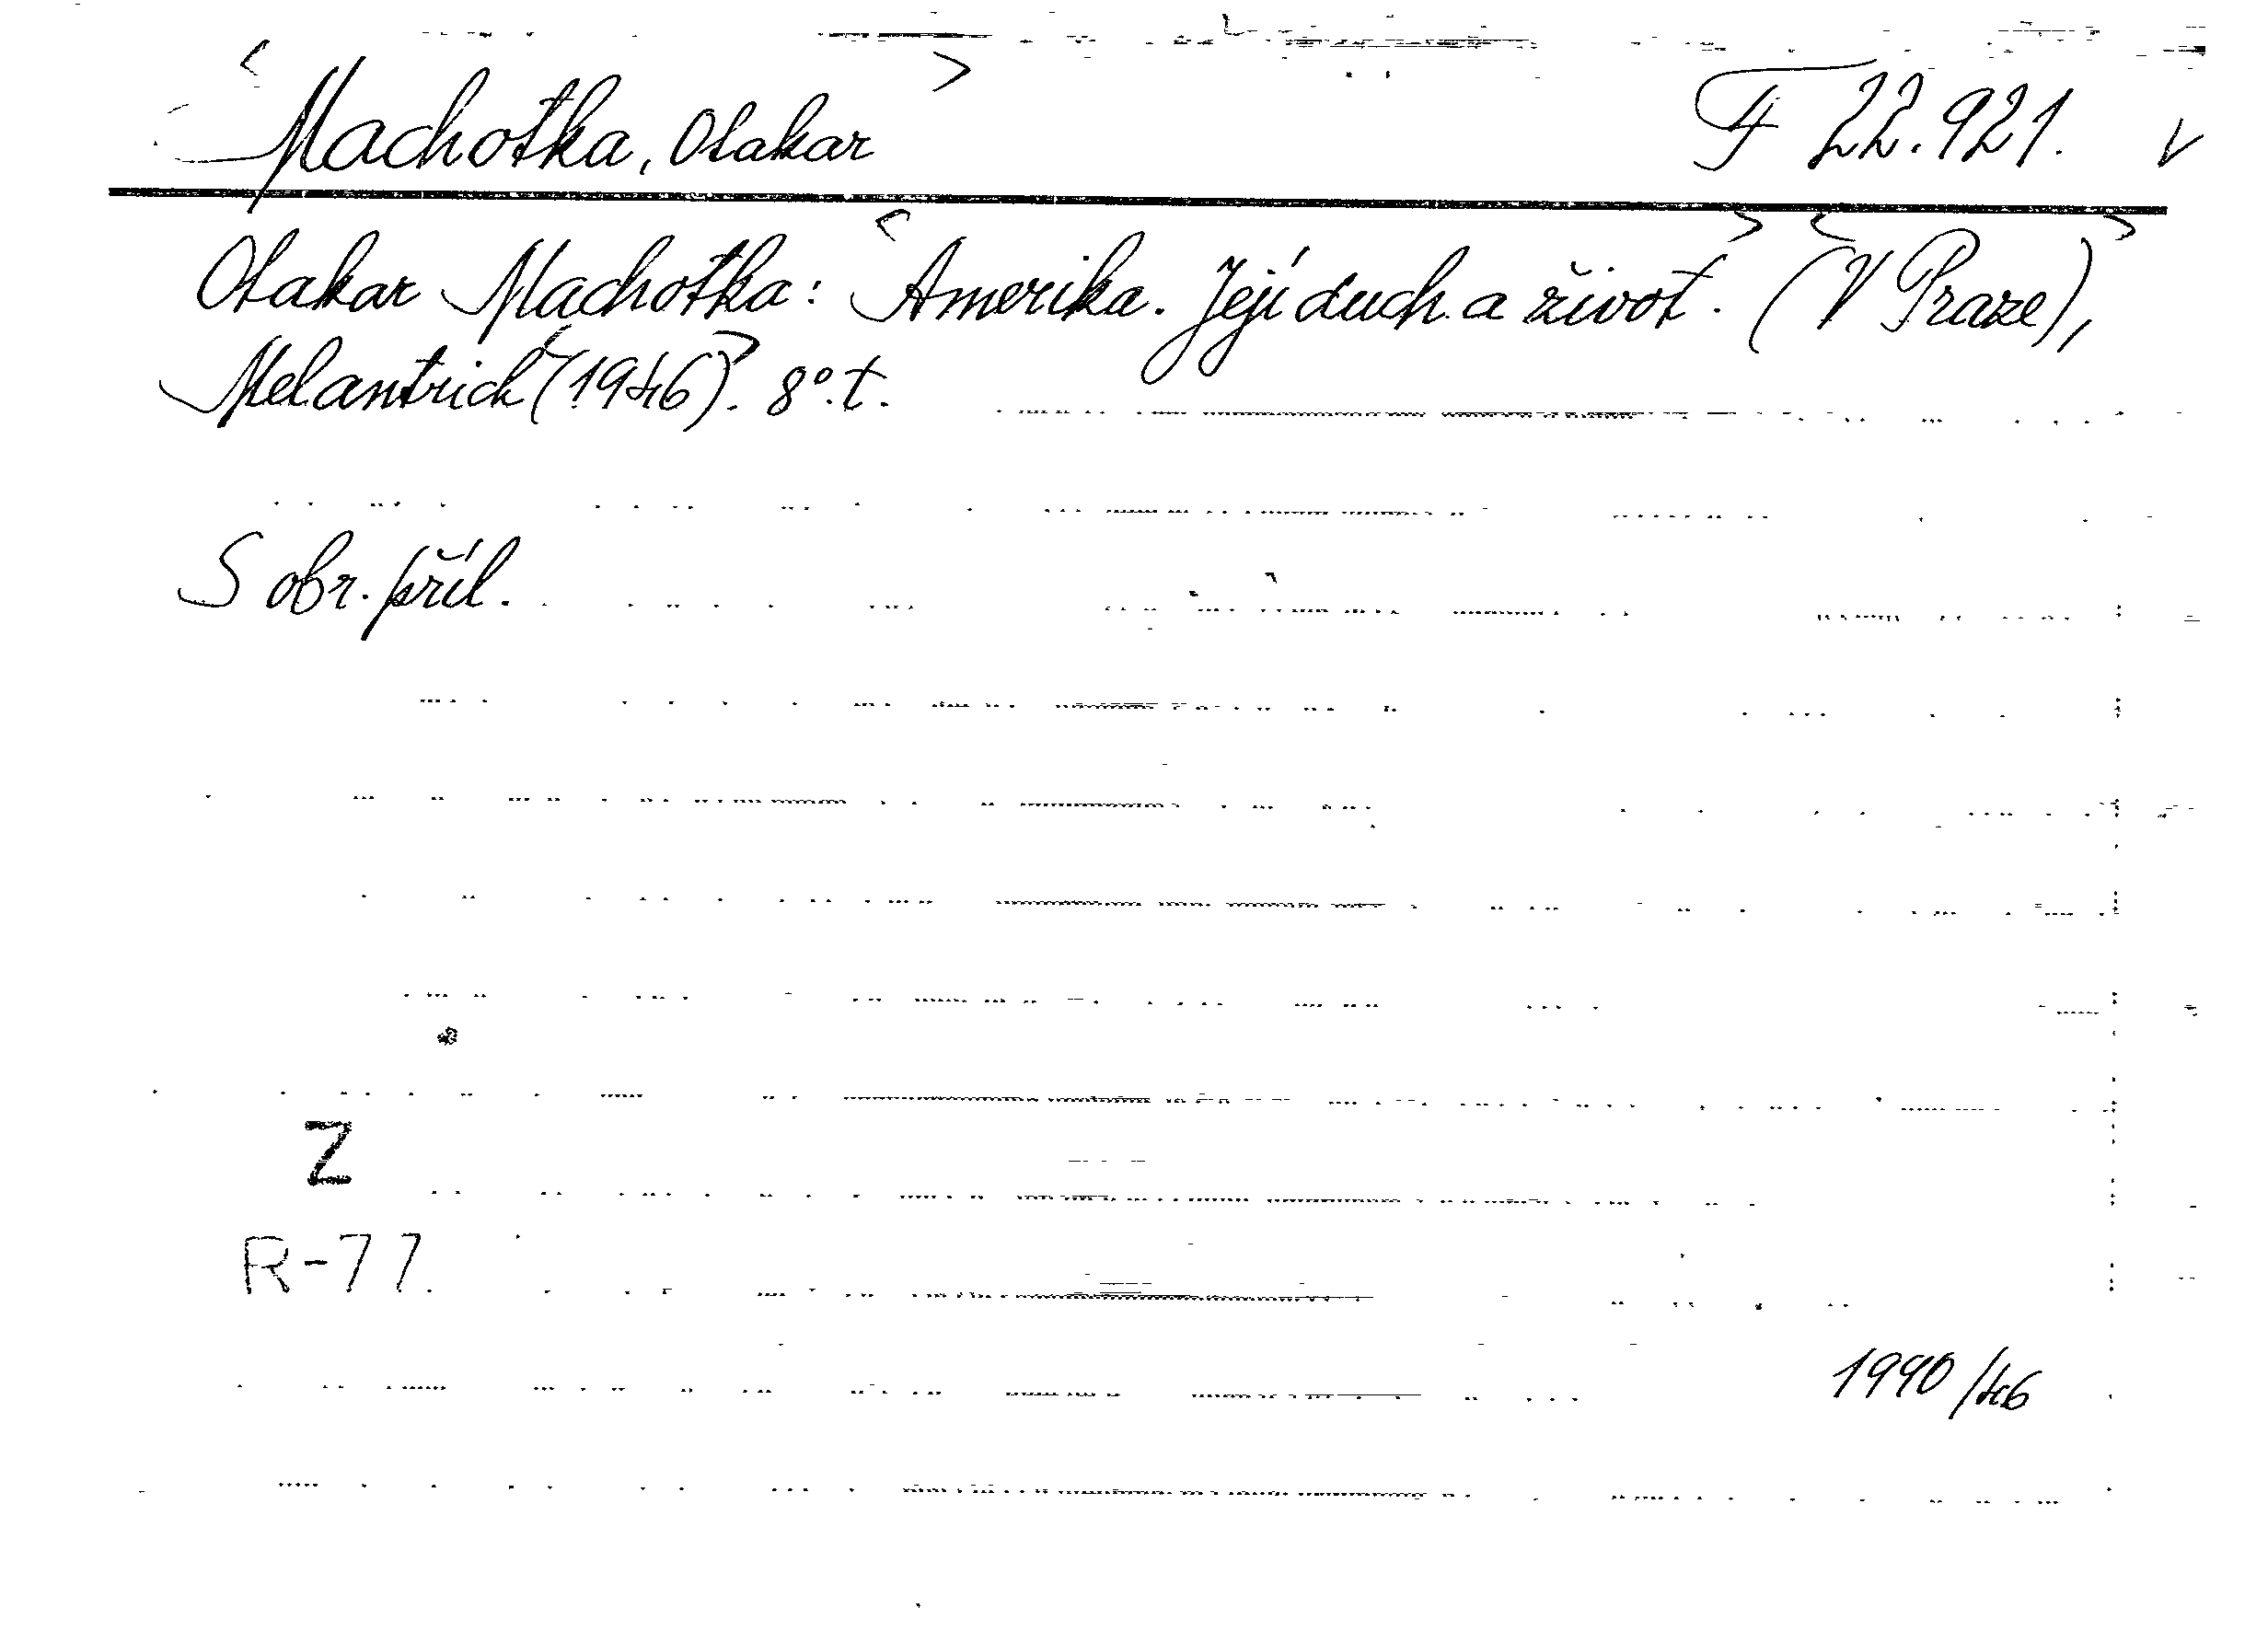 Machotka, Otakar F 22.921. v
Otakar Machotka: Amerika. Její duch a život. (V Praze),
Melantrich (1946). 8°. t.
S obr. příl.
Z
R-77.
1990/46